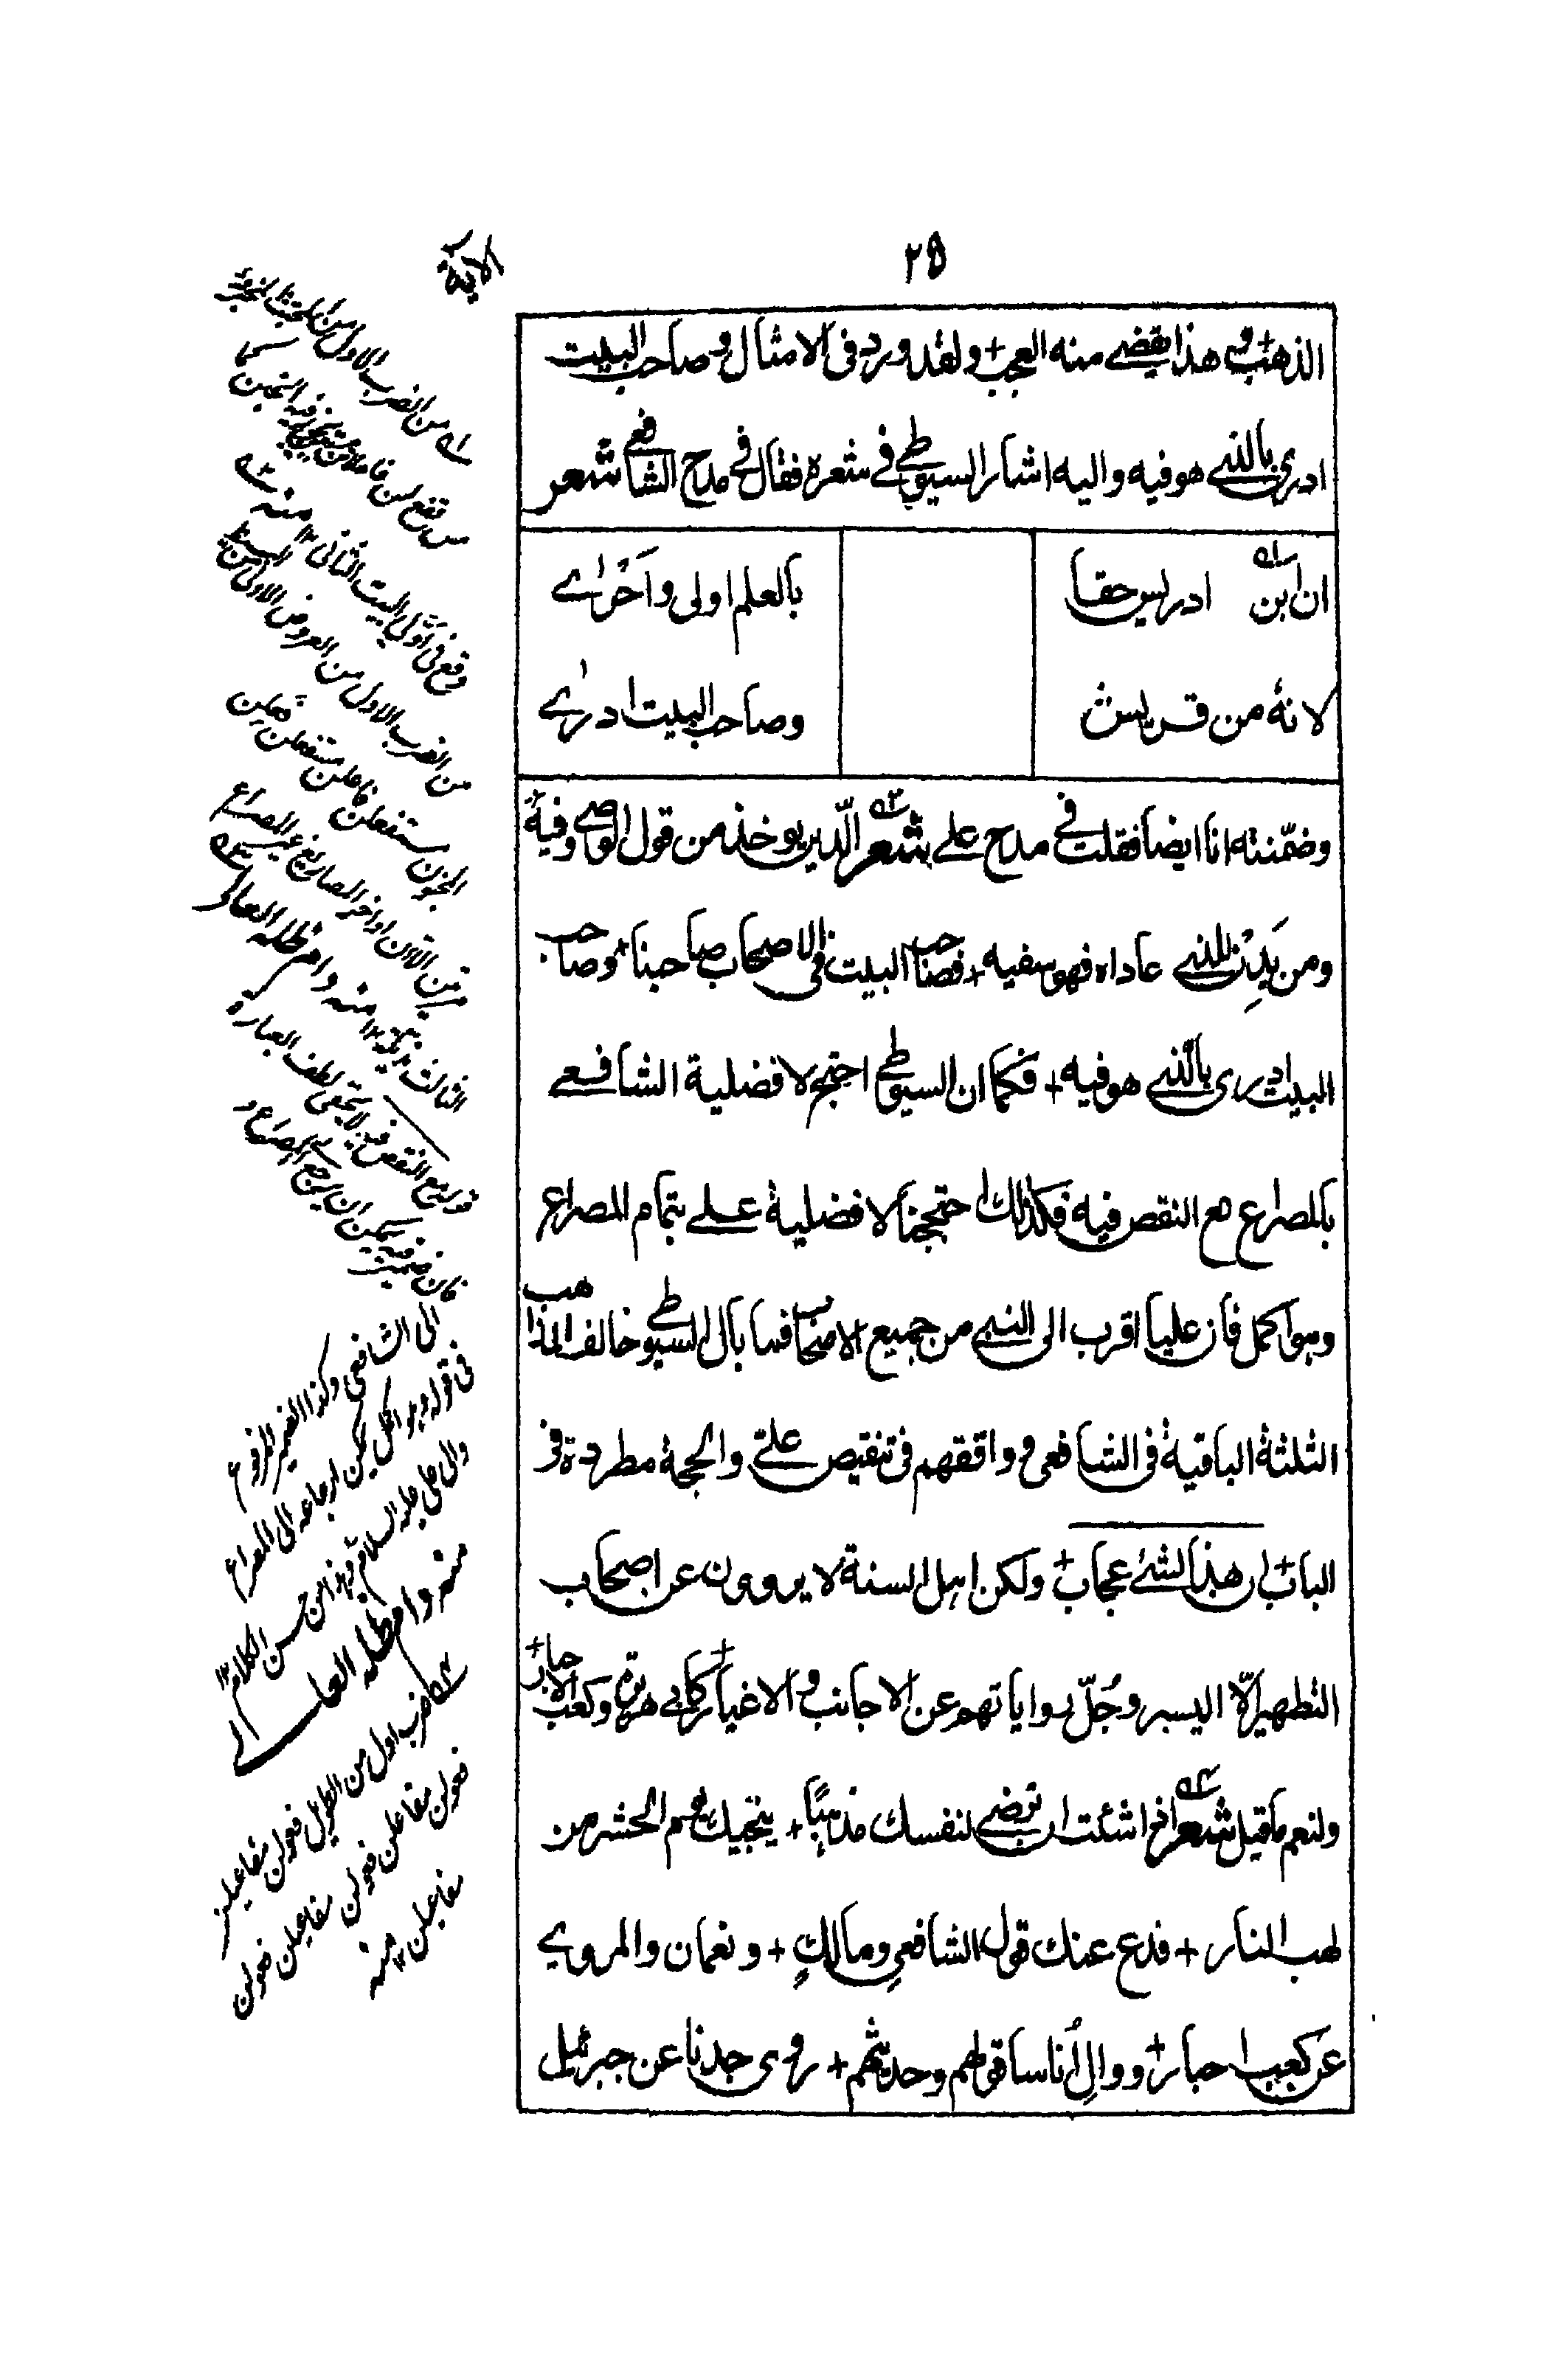 ٢٥
الآية
الذهب + و هذا يقضے منه العجب + ولقد ورد فى الامثال و صاحب البيت
ادرى بالذے هو فيه واليه اشار السيوطے فے شعره فقال فے مدح الشافعے شعر
ان ابن ادريس حقا بالعلم اولى واَحْرٰے
لانهٗ من قريش وصاحب البيت ادرٰے
وضمّنته انا ايضا فقلت فے مدح علے شعر الدين يوخذ من قول الوصے وفيه
ومن يَدِنْ للذے عاداه فهو سفيه + فصاحب البيت فى الاصحاب صاحبنا + وصاحب
البيت ادرى بالذے هو فيه + فكما ان السيوطے احتج لافضلية الشافعے
بالمصراع مع النقص فيه فكذلك احتججنا لافضلية علے بتمام المصراع
وهو اكمل فان عليا اقرب الى النبے من جميع الاصحاب فما بال السيوطے خالف المذاهب
الثلثة الباقية فى الشافعى و وافقهم فى تنقيص علے والحجة مطردة فى
الباب + ان هذا لشئ عجاب + ولكن اهل السنة لا يروون عن اصحاب
التطهير الّا اليسير و جُلّ رواياتهم عن الاجانب و الاغيار + كابى هريرة وكعب الاحبار +
ولنعم ما قيل شعر اذا شئت ان ترضے لنفسك مذهبًا + ينجيك يوم الحشر من
لهب النار + فدع عنك قول الشافعى ومالكٍ + ونعمان والمروي
عن كعب احبار + ووالِ اُناسا قولهم وحديثهم + روى جدنا عن جبرئيل
من الضرب الاول من
وقع فى اول البيت الثانى ١٢ منه
من الضرب الاول من العروض الاولى من البسيط
مستفعلن فاعلن مستفعلن
منه دام ظله العالے
الى الشافعى وكذا الضمير المرفوع
فى قوله وهو اكمل يمكن ارجاعه الى المصراع
والى على عليه السلام وهذا من حسن الكلام ١٢
منه دام ظله العالے
ضرب اول من الطويل فعولن مفاعيلن
فعولن مفاعلن فعولن مفاعيلن فعولن
مفاعيلن ١٢ منه